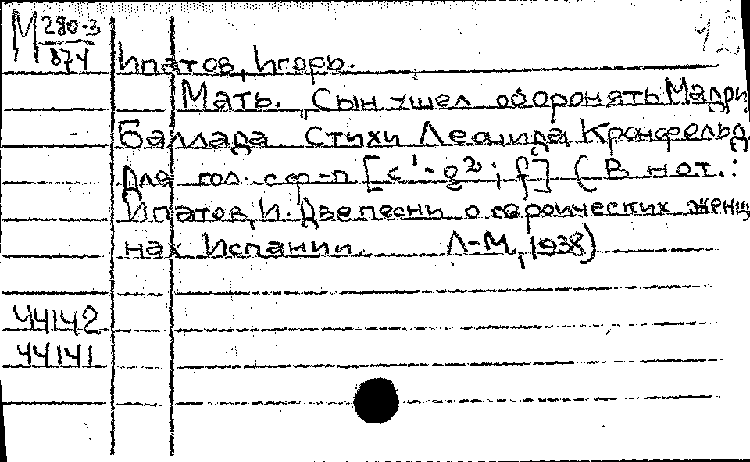 М 280-3
874
Ипатов, Игорь.
Мать. "Сын ушел оборонять Мадри
Баллада. Стихи Леонида Кронфельд
Для гол. с ф-п [c¹-g²; f] (В нот.:
Ипатов, И. Две песни о героических женщ
нах Испании. Л-М, 1938)
44142
44141